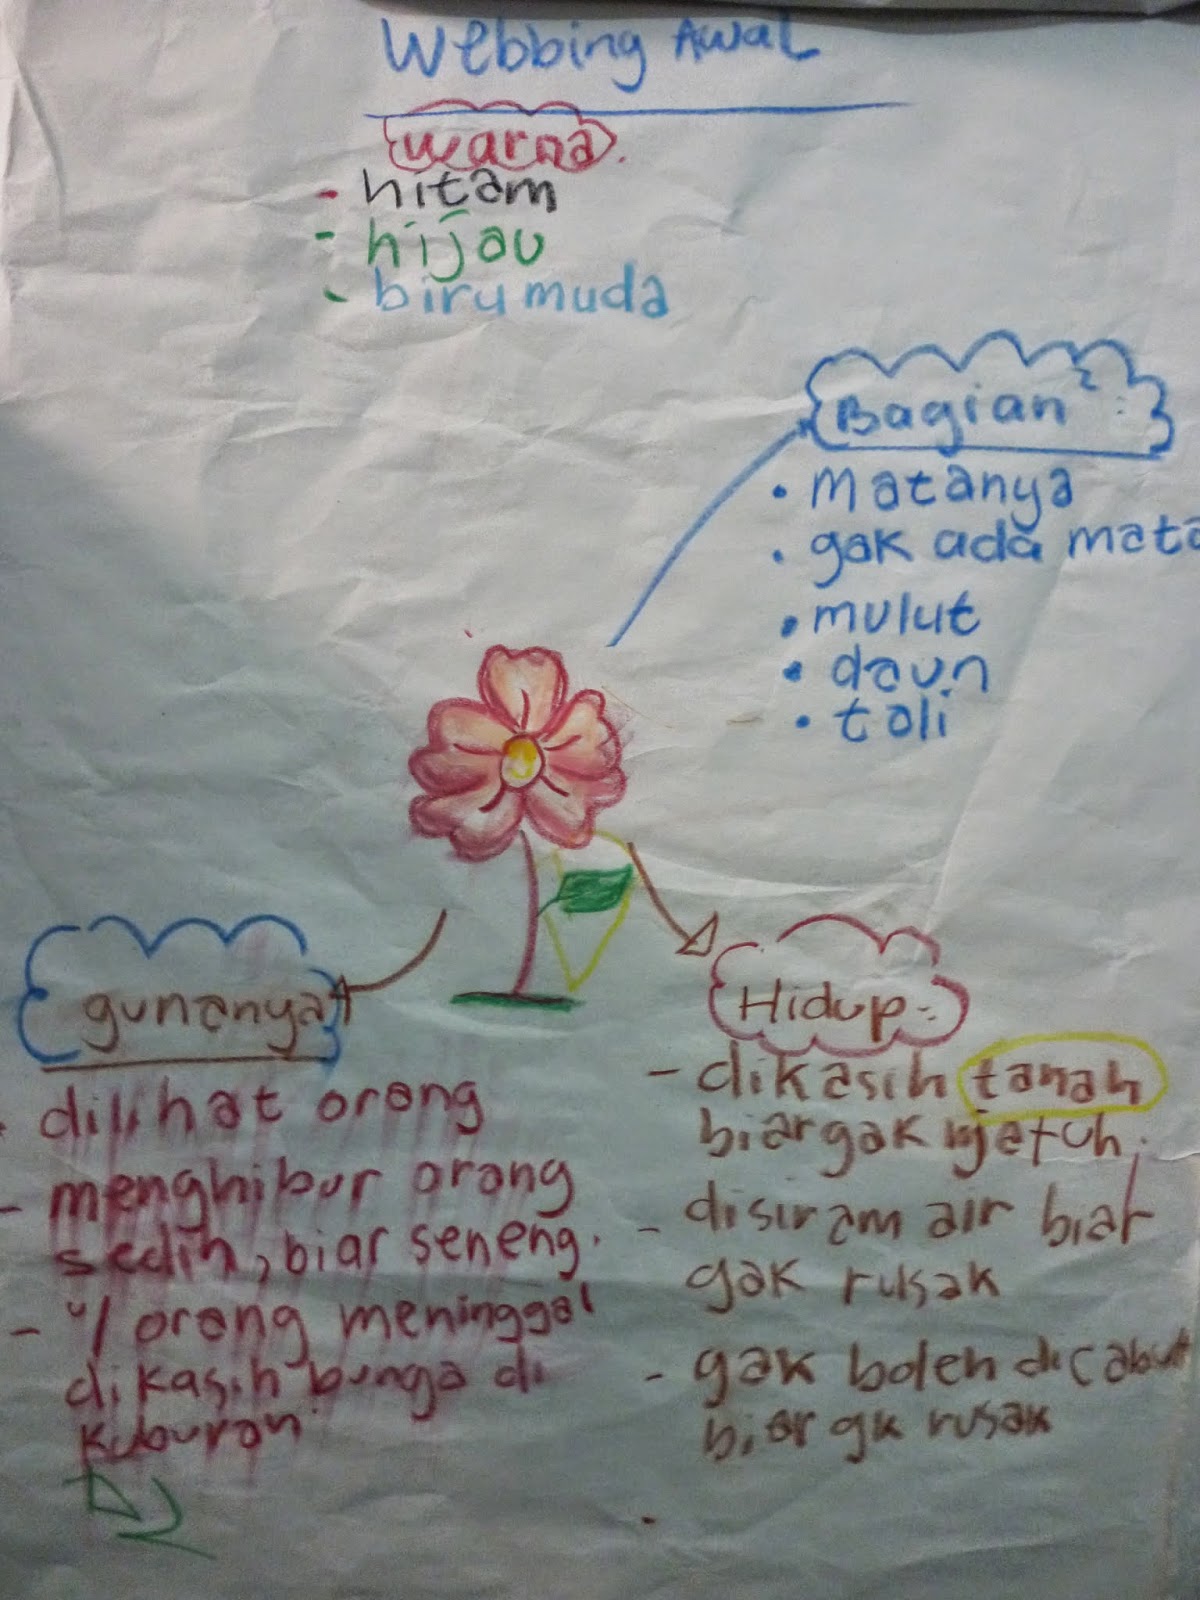 Webbing Awal
warna
- hitam
- hijau
- biru muda
Bagian² :
• Matanya
• gak ada mata
• mulut
• daun
• tali
gunanya
• dilihat orang
- menghibur orang
sedih, biar seneng.
- u/ orang meninggal
dikasih bunga di
kuburan
Hidup :
- dikasih tanah
biar gak jatuh.
- disiram air biar
gak rusak
- gak boleh dicabut
biar gk rusak